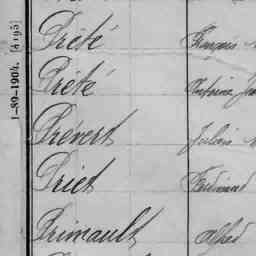 1-89-1904. [4195]
Prété François
Prété Antoine
Prévert
Priet Ferdinand
Primault Alfred